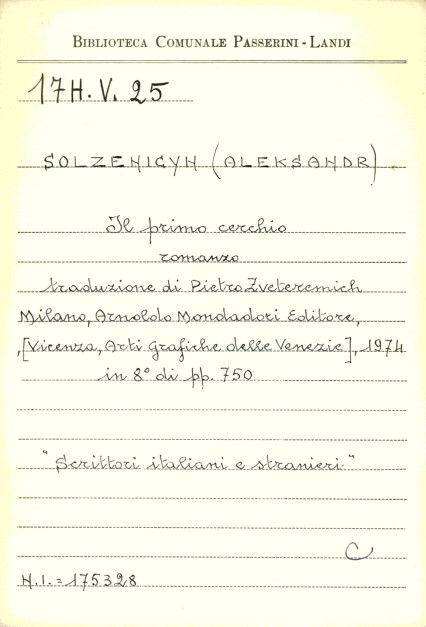 BIBLIOTECA COMUNALE PASSERINI - LANDI
17H. V. 25
SOLZENICYN (ALEKSANDR)
Il primo cerchio
romanzo
traduzione di Pietro Zveteremich
Milano, Arnoldo Mondadori Editore,
,[Vicenza, Arti Grafiche delle Venezie], 1974
in 8° di pp. 750
"Scrittori italiani e stranieri"
C
N.I. = 175328